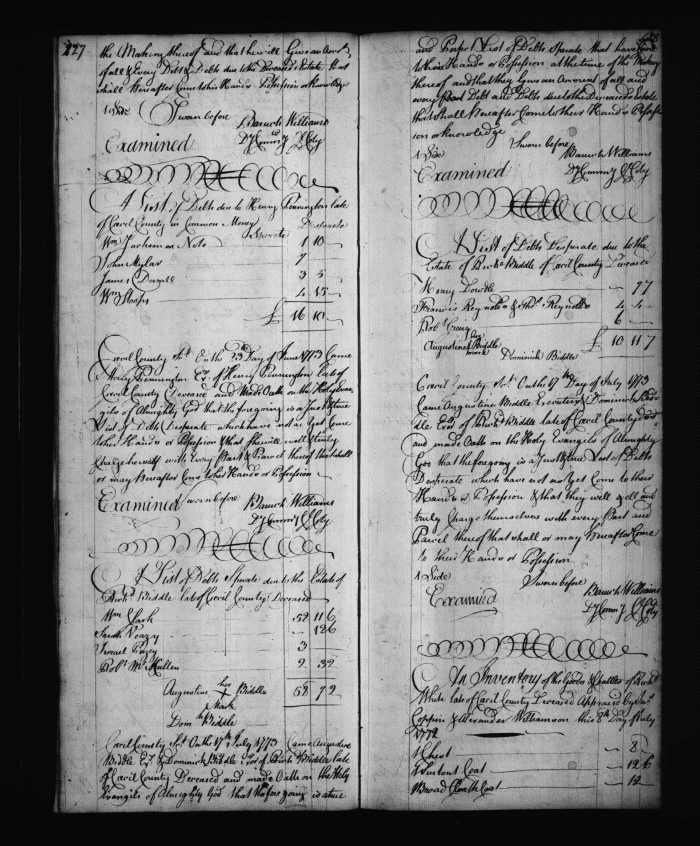 127
the Making thereof and that he will Give an Acco.t
of all & Every Debt & Debts due to the Deceased's Estate that
shall Hereafter Come to his Hands Possession or Knowledge
1 Side Sworn before Baruch Williams
Examined Dy Commy C Coty
A List of Debts due to Henry Pennington late
of Cecil County in Common Money Desperate
Sperate
Wm Jackson on Note 1 10
John
James 3 5
Wm 4 15
£ 16 10
Cecil County Sct. On the Day of June 1773 Came
Mary Pennington Ex.x of Henry Pennington late of
Cecil County Deceased and Made Oath on the Holy Evan
gils of Almighty God that the foregoing is a Just & true
List of Debts Desperate which have not as yet Come
to her Hands or Possession & that she will well & truly
Charge herself with Every Part & Parcel thereof that shall
or may Hereafter Come to her Hands or Possession
Examined Sworn before Baruch Williams
Dy Commy C Coty
A List of Debts Sperate due to the Estate of
Biddle late of Cecil County Deceased
Wm Clark 52 11 6
Sarah 12 6
3
Robt McKullen 2 3 2
Augustine her X Mark Biddle 58 7 2
Biddle
Cecil County Sct. On the 17th July 1773 Came Augustine
Biddle Ex.x & Dominick Biddle Exor of Biddle late
of Cecil County Deceased and made Oath on the Holy
Evangils of Almighty God that the foregoing is a true
and Perfect List of Debts Sperate that have Come
to their Hands or Possession at the time of the Making
thereof and that they Give an Account of all and
every Debt and Debts due to the Deceased's Estate
that shall Hereafter Come to their Hands Possess
ion or Knowledge
Sworn before
1 Side Baruch Williams
Examined Dy Commy C Coty
A List of Debts Desperate due to the
Estate of Biddle of Cecil County Deceased
Henry 7 7
Francis Reynolds & Reynolds 4 4
Robt 6
Augustine her X mark Biddle £ 10 11 7
Dominick Biddle
Cecil County Sct. On the 17th Day of July 1773
Came Augustine Biddle Executrix & Dominick Bid
dle Exor of Biddle late of Cecil County Decd
and made Oath on the Holy Evangils of Almighty
God that the foregoing is a Just & true List of Debts
Desperate which have not as Yet Come to their
Hands or Possession & that they will well and
truly Charge themselves with every Part and
Parcel thereof that shall or may Hereafter Come
to their Hands or Possession
1 Side Sworn before
Baruch Williams
Examined Dy Commy C Coty
An Inventory of the Goods & Chattles of
White late of Cecil County Deceased Appraised by
& Alexander Williamson this 8th Day of July
1772
1 Chest 8
1 Coat 12 6
1 Broad Cloath Coat 12